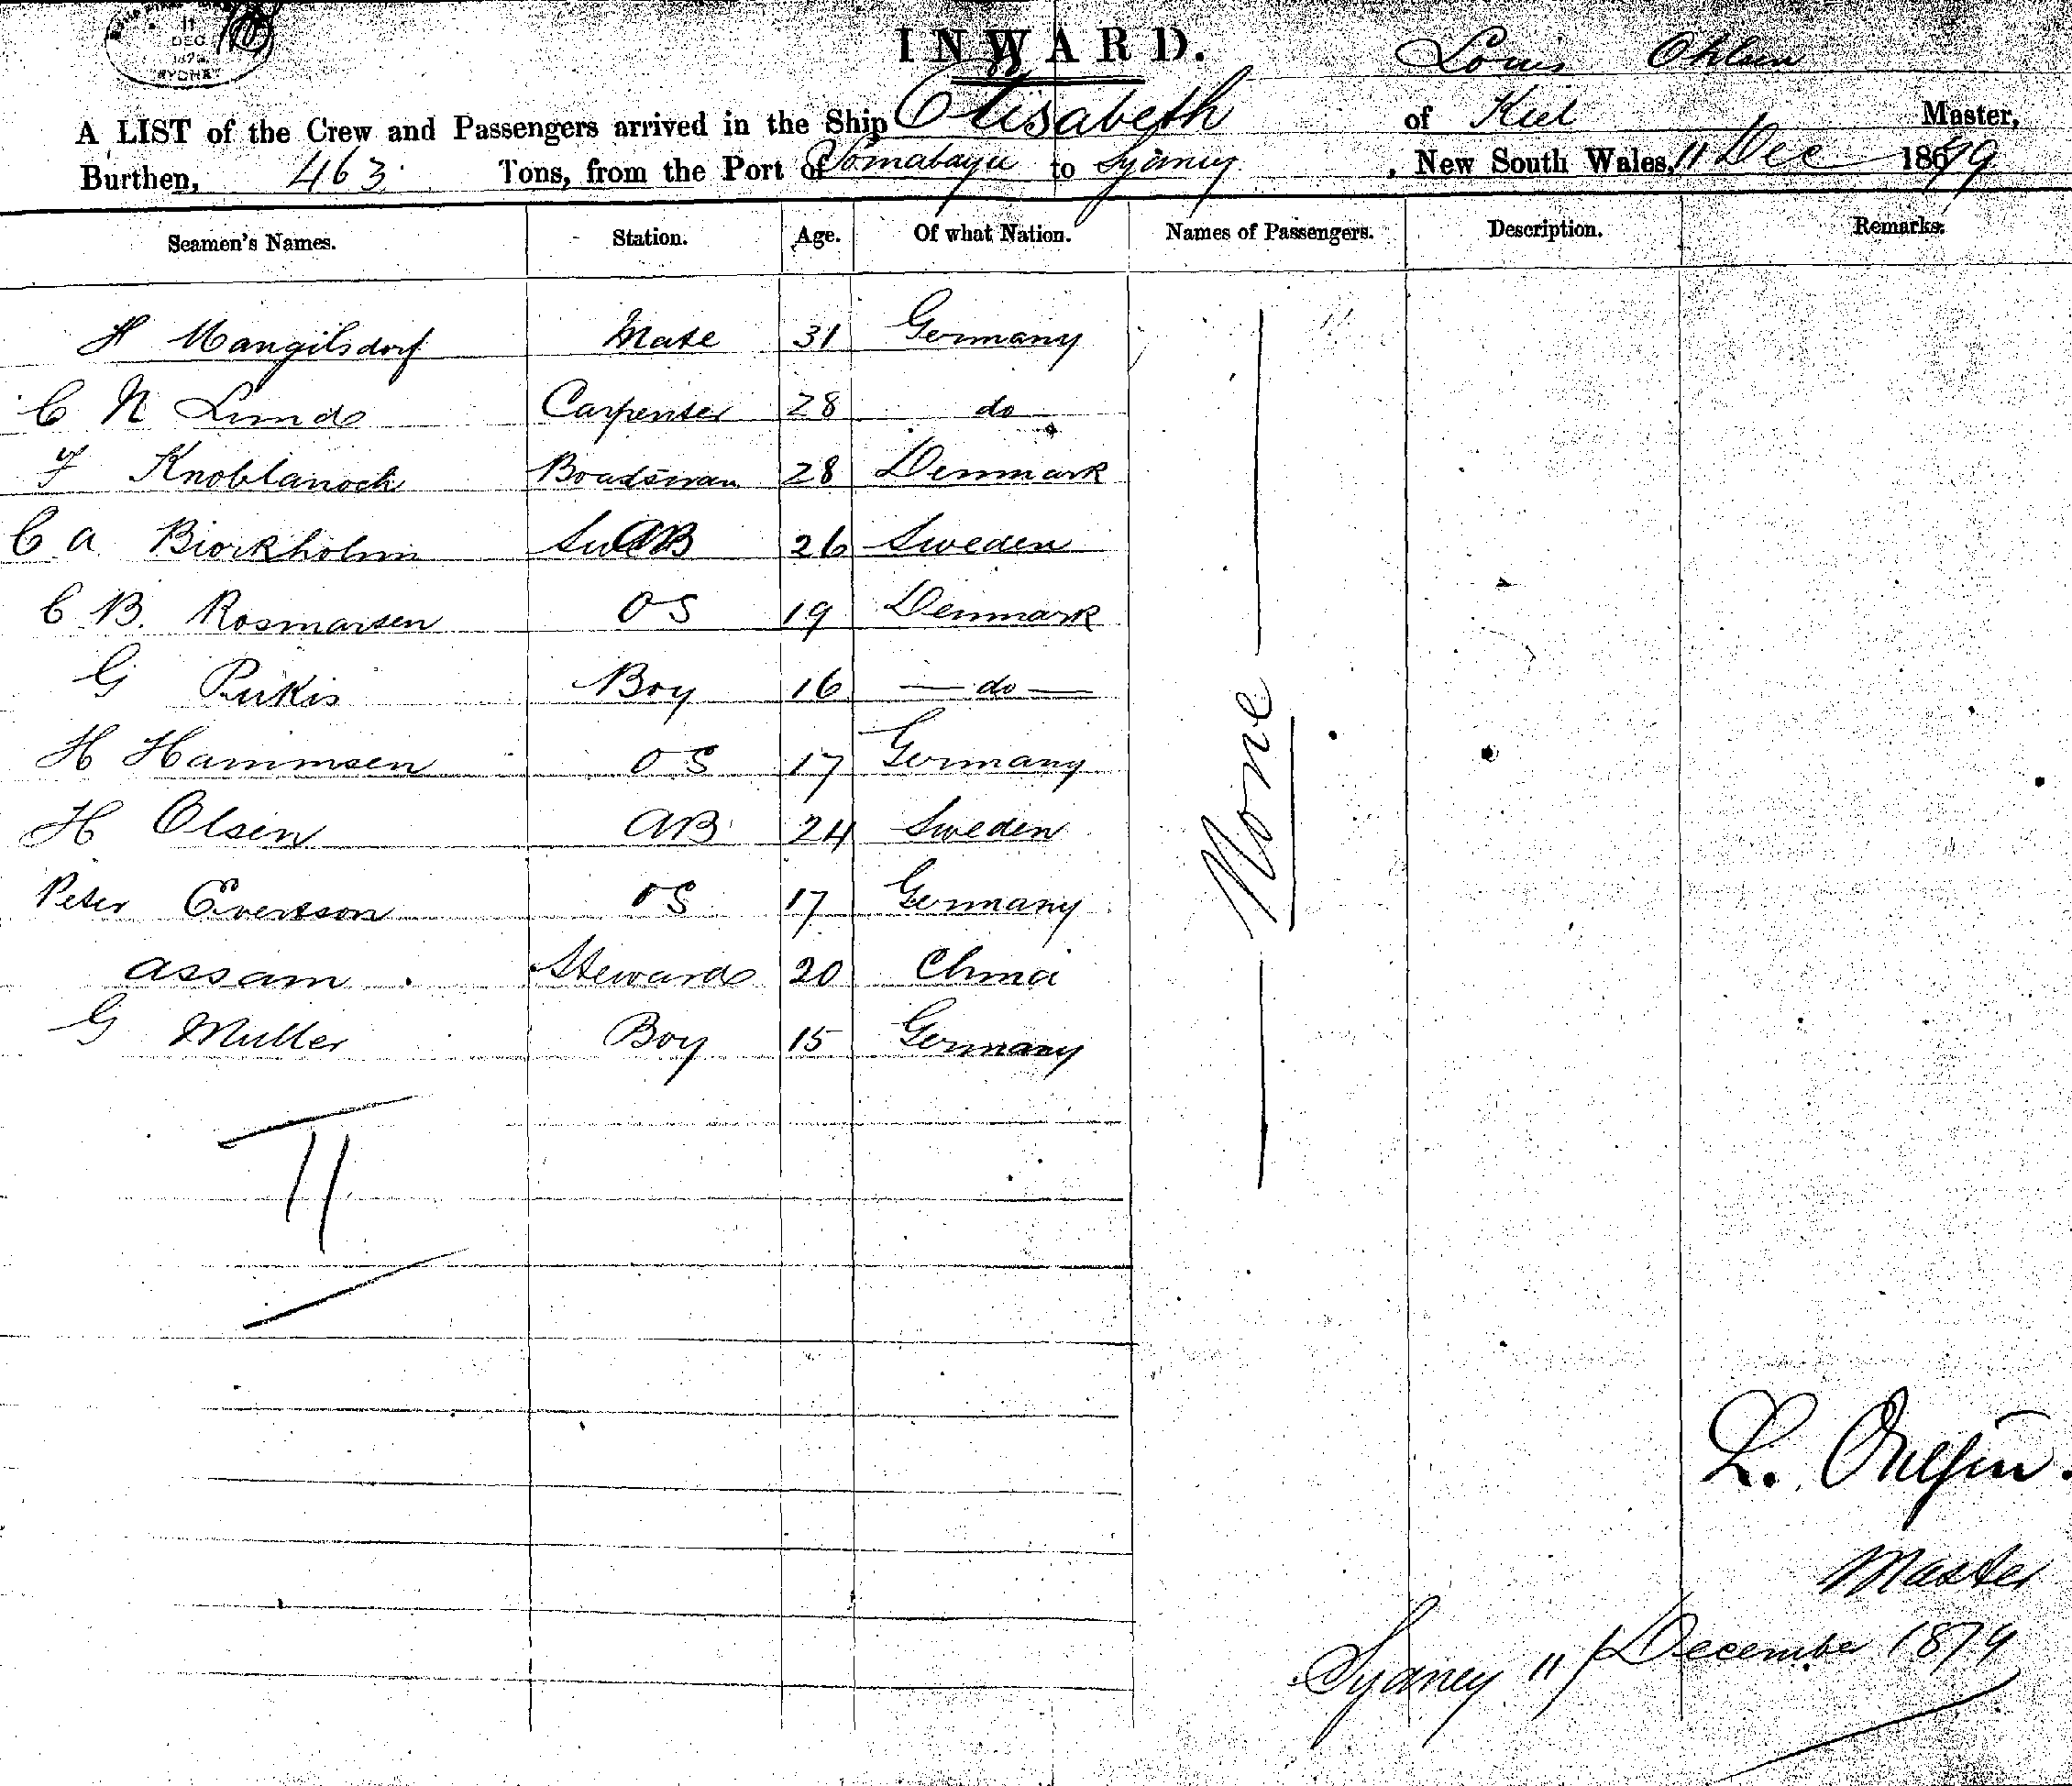 11
DEC
SYDNEY
INWARD.
Louis Ohlsen
A LIST of the Crew and Passengers arrived in the Ship Elisabeth of Kiel Master,
Burthen, 463 Tons, from the Port of to Sydney, New South Wales, 11 Dec 1879
Seamen's Names. Station. Age. Of what Nation. Names of Passengers. Description. Remarks.
H Mangilsdorf Mate 31 Germany
C N Lund Carpenter 28 do
F Knoblanock Boadswan 28 Denmark
C A Biorkholm AB 26 Sweden
C B. Rosmarsen OS 19 Denmark
G Boy 16 — do —
H Hammsen OS 17 Germany
H Olsen AB 24 Sweden
Peter Evertson OS 17 Germany
Assam Steward 20 China
G Muller Boy 15 Germany
None
11
L. Ohlsen.
Master
Sydney 11/December 1879